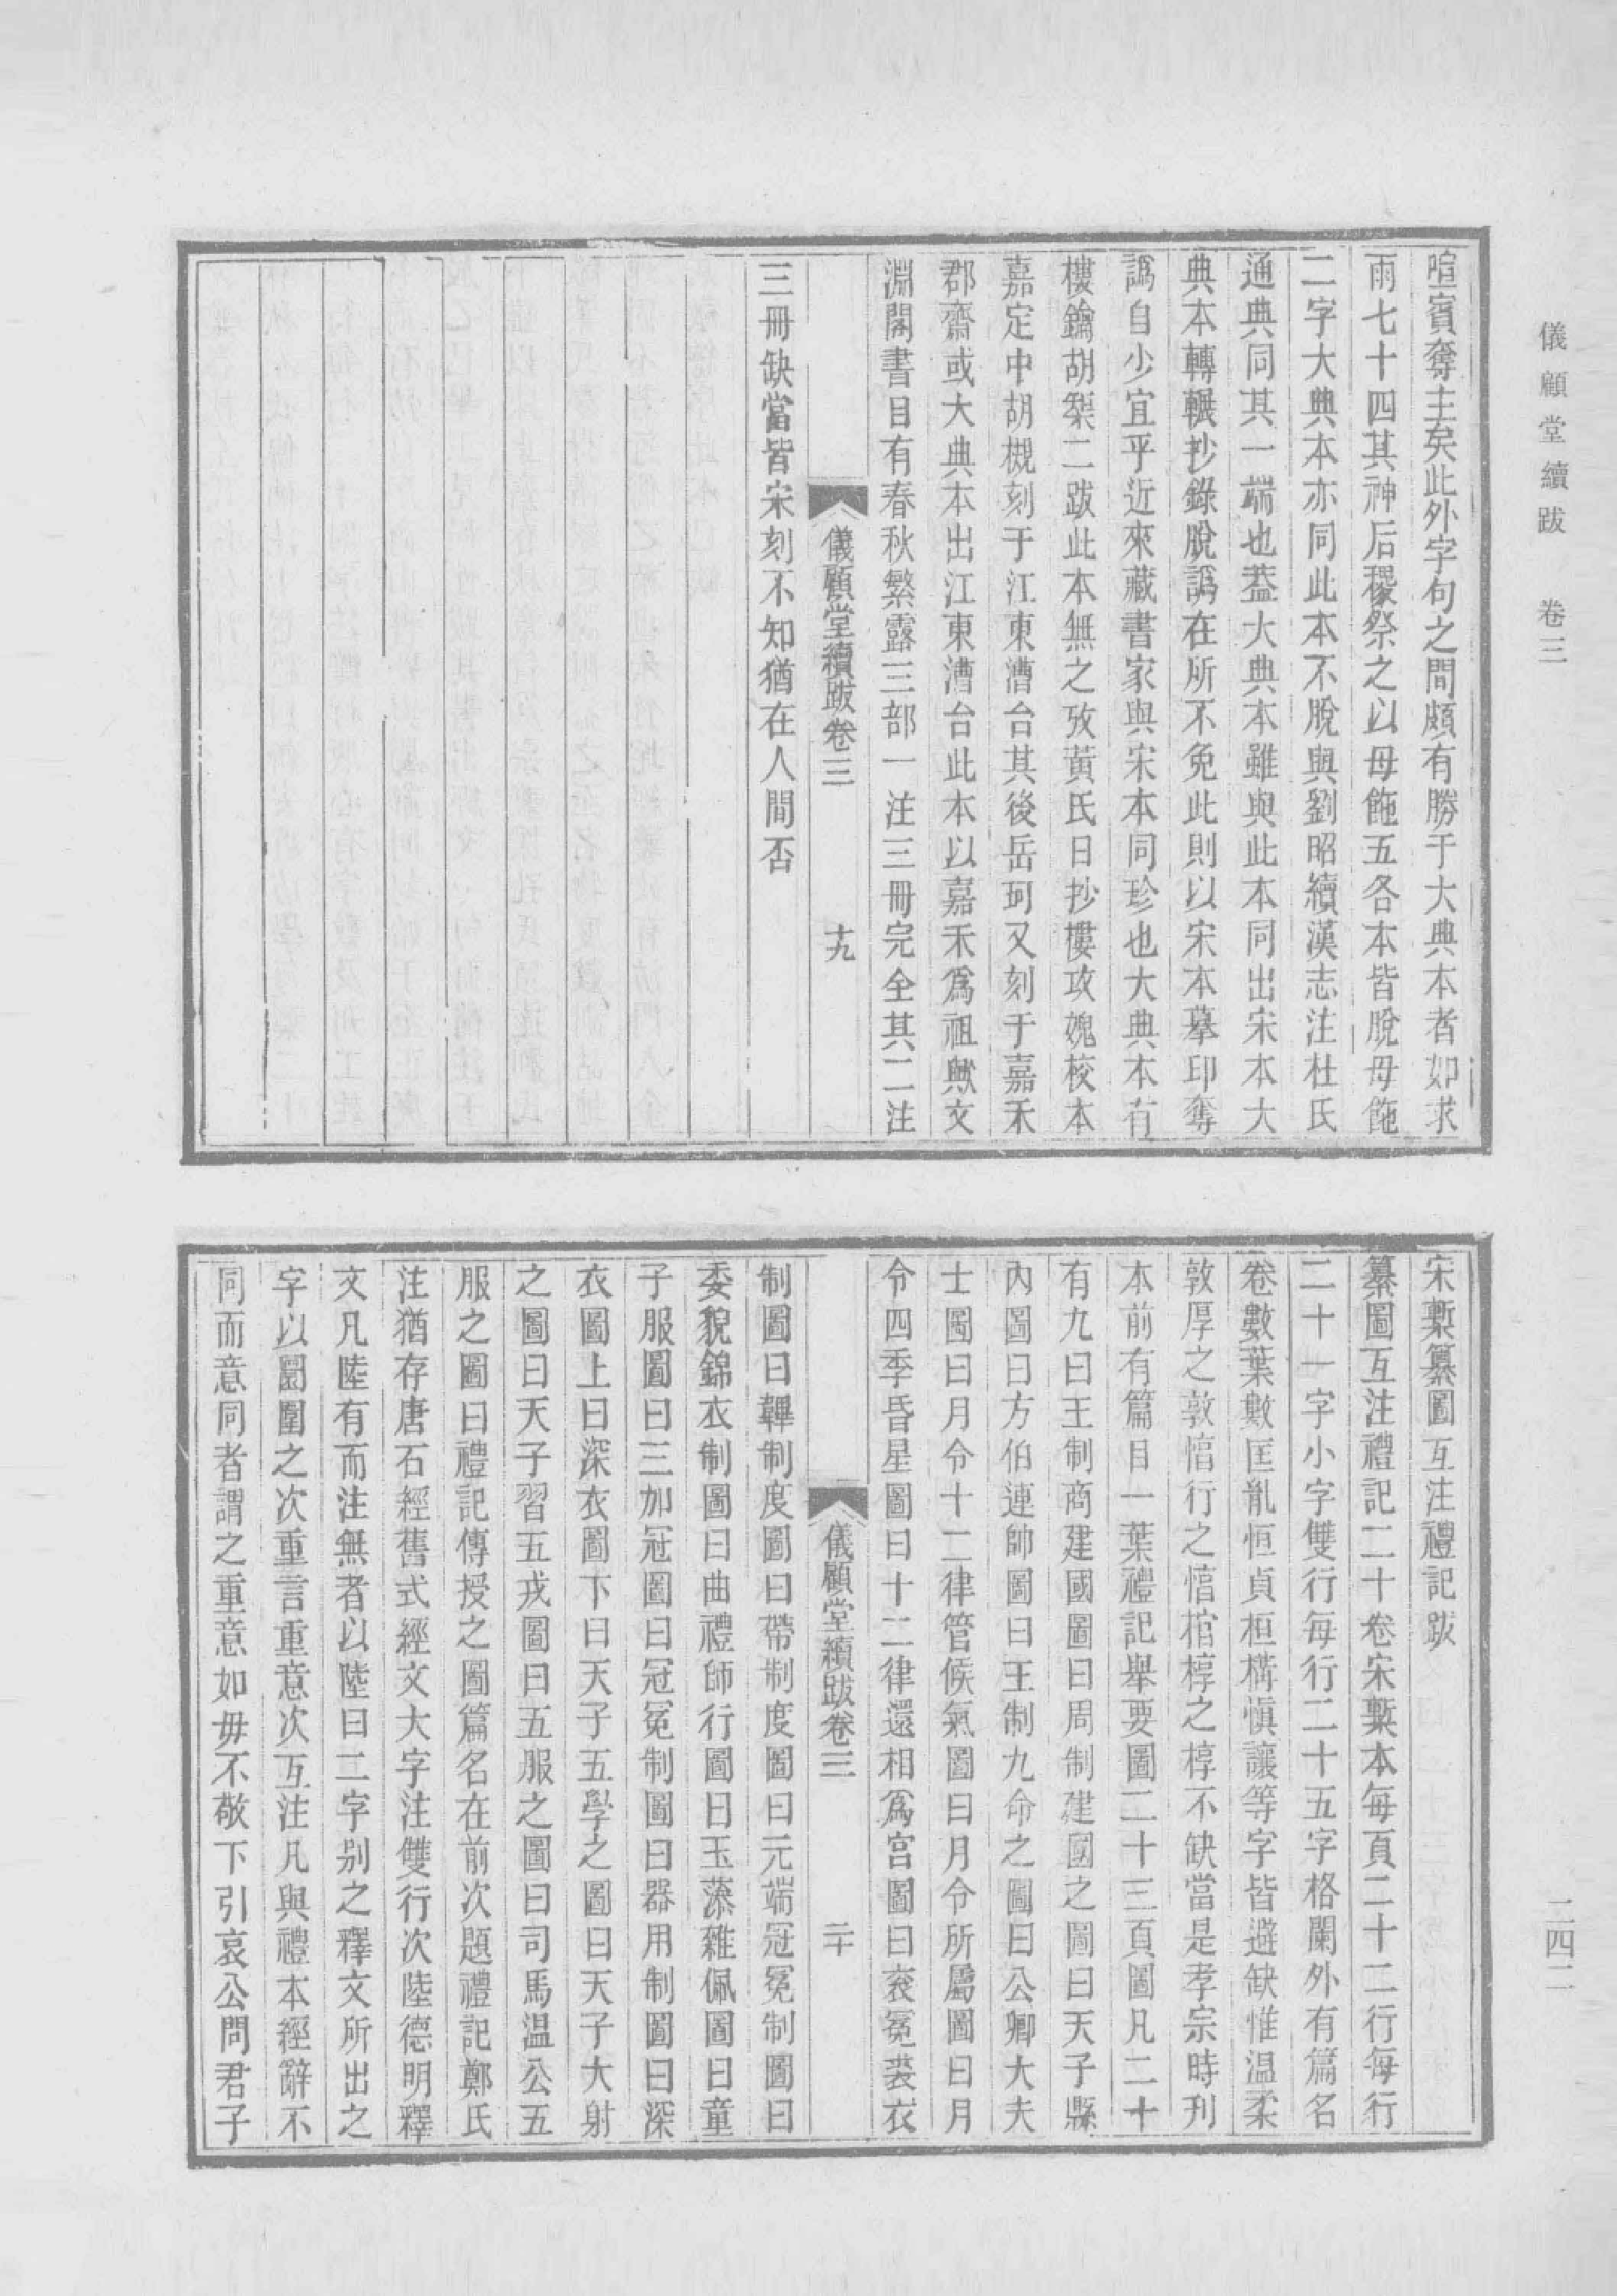 儀顧堂續跋　卷三
喧賓奪主矣此外字句之間頗有勝于大典本者如求
雨七十四其神后稷祭之以母飽五各本皆脫母飽
二字大典本亦同此本不脫與劉昭續漢志注杜氏
通典同其一端也蓋大典本雖與此本同出宋本大
典本轉輾抄錄脫譌在所不免此則以宋本摹印奪
譌自少宜乎近來藏書家與宋本同珍也大典本有
樓鑰胡榘二跋此本無之攷黃氏日抄樓攻媿校本
嘉定中胡槻刻于江東漕台其後岳珂又刻于嘉禾
郡齋或大典本出江東漕台此本以嘉禾爲祖歟文
淵閣書目有春秋繁露三部一注三冊完全其二注
儀顧堂續跋卷三
十九
三冊缺當皆宋刻不知猶在人間否
宋槧纂圖互注禮記跋
纂圖互注禮記二十卷宋槧本每頁二十二行每行
二十一字小字雙行每行二十五字格闌外有篇名
卷數葉數匡胤恒貞桓構愼讓等字皆避缺惟温柔
敦厚之敦惇行之惇棺椁之椁不缺當是孝宗時刊
本前有篇目一葉禮記舉要圖二十三頁圖凡二十
有九曰王制商建國圖曰周制建國之圖曰天子縣
內圖曰方伯連帥圖曰王制九命之圖曰公卿大夫
士圖曰月令十二律管候氣圖曰月令所屬圖曰月
令四季昏星圖曰十二律還相爲宮圖曰衮冕裘衣
儀顧堂續跋卷三
二十
制圖曰鞸制度圖曰帶制度圖曰元端冠冕制圖曰
委貌錦衣制圖曰曲禮師行圖曰玉藻雜佩圖曰童
子服圖曰三加冠圖曰冠冕制圖曰器用制圖曰深
衣圖上曰深衣圖下曰天子五學之圖曰天子大射
之圖曰天子習五戎圖曰五服之圖曰司馬温公五
服之圖曰禮記傳授之圖篇名在前次題禮記鄭氏
注猶存唐石經舊式經文大字注雙行次陸德明釋
文凡陸有而注無者以陸曰二字别之釋文所出之
字以圏圍之次重言重意次互注凡與禮本經辭不
同而意同者謂之重意如毋不敬下引哀公問君子
二四二